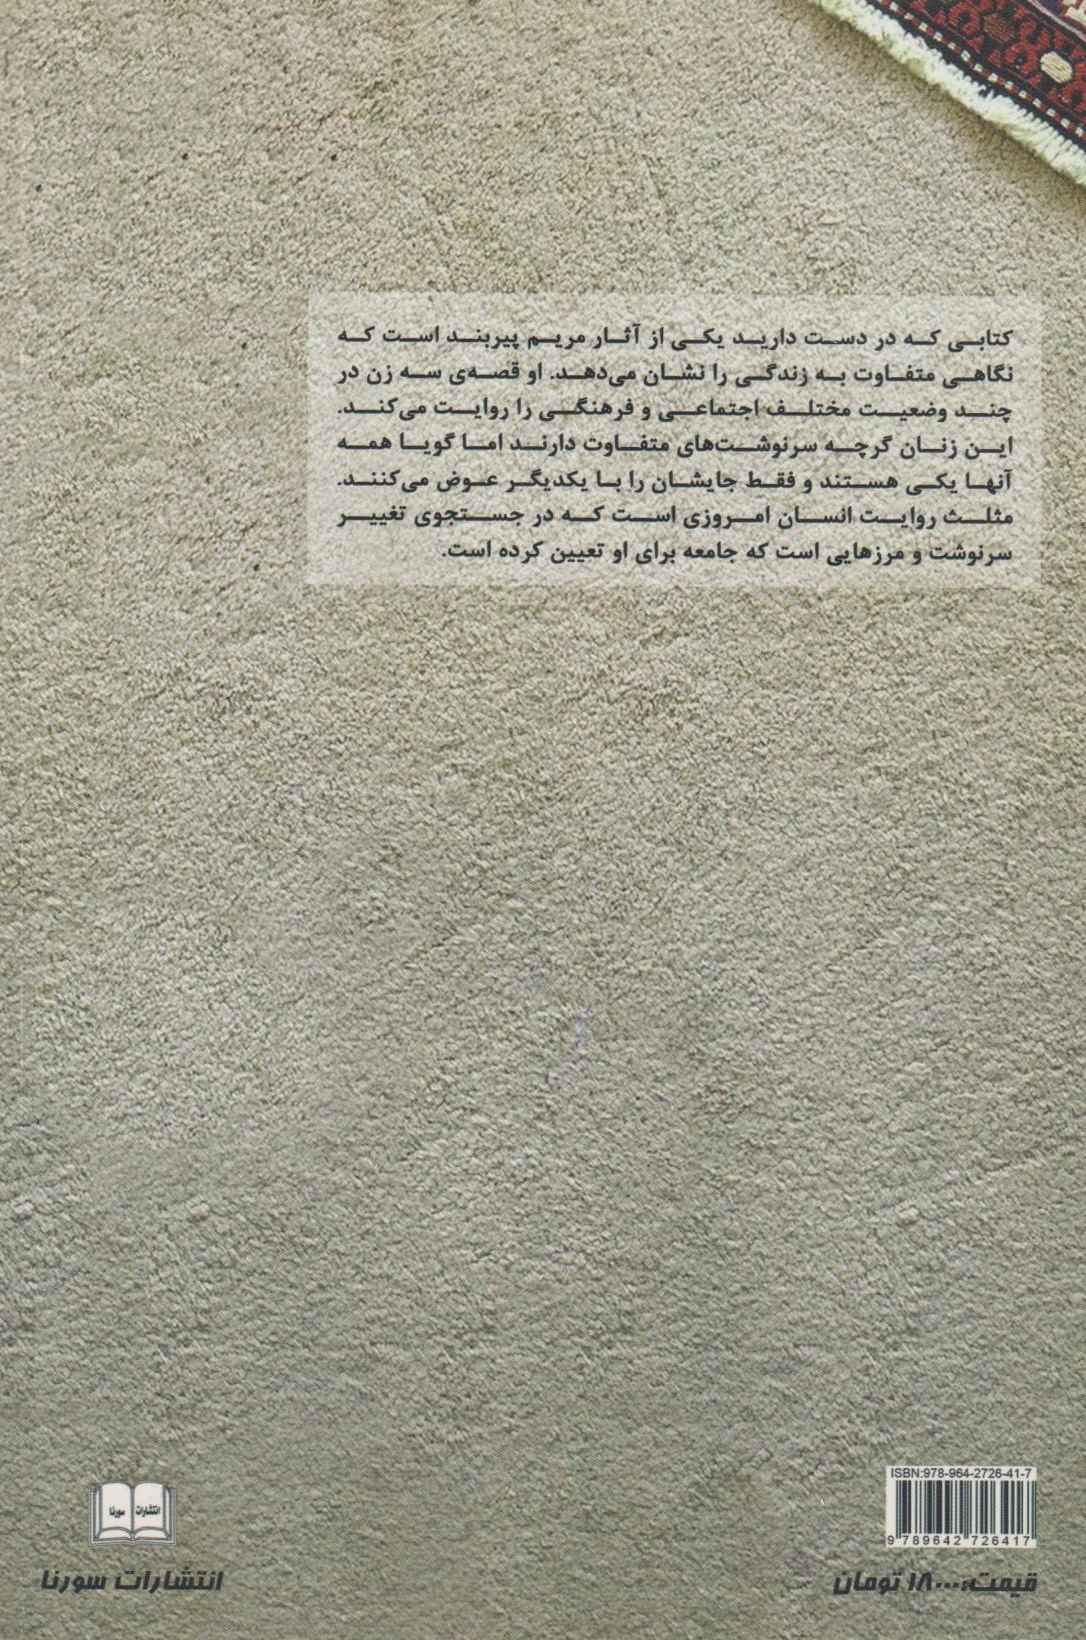 کتابی که در دست دارید یکی از آثار مریم پیربند است که
نگاهی متفاوت به زندگی را نشان می‌دهد. او قصه‌ی سه زن در
چند وضعیت مختلف اجتماعی و فرهنگی را روایت می‌کند.
این زنان گرچه سرنوشت‌های متفاوت دارند اما گویا همه
آنها یکی هستند و فقط جایشان را با یکدیگر عوض می‌کنند.
مثلث روایت انسان امروزی است که در جستجوی تغییر
سرنوشت و مرزهایی است که جامعه برای او تعیین کرده است.
ISBN:978-964-2726-41-7
9 789642 726417
قیمت: ۱۸۰۰۰ تومان
انتشارات سورنا
انتشارات سورنا